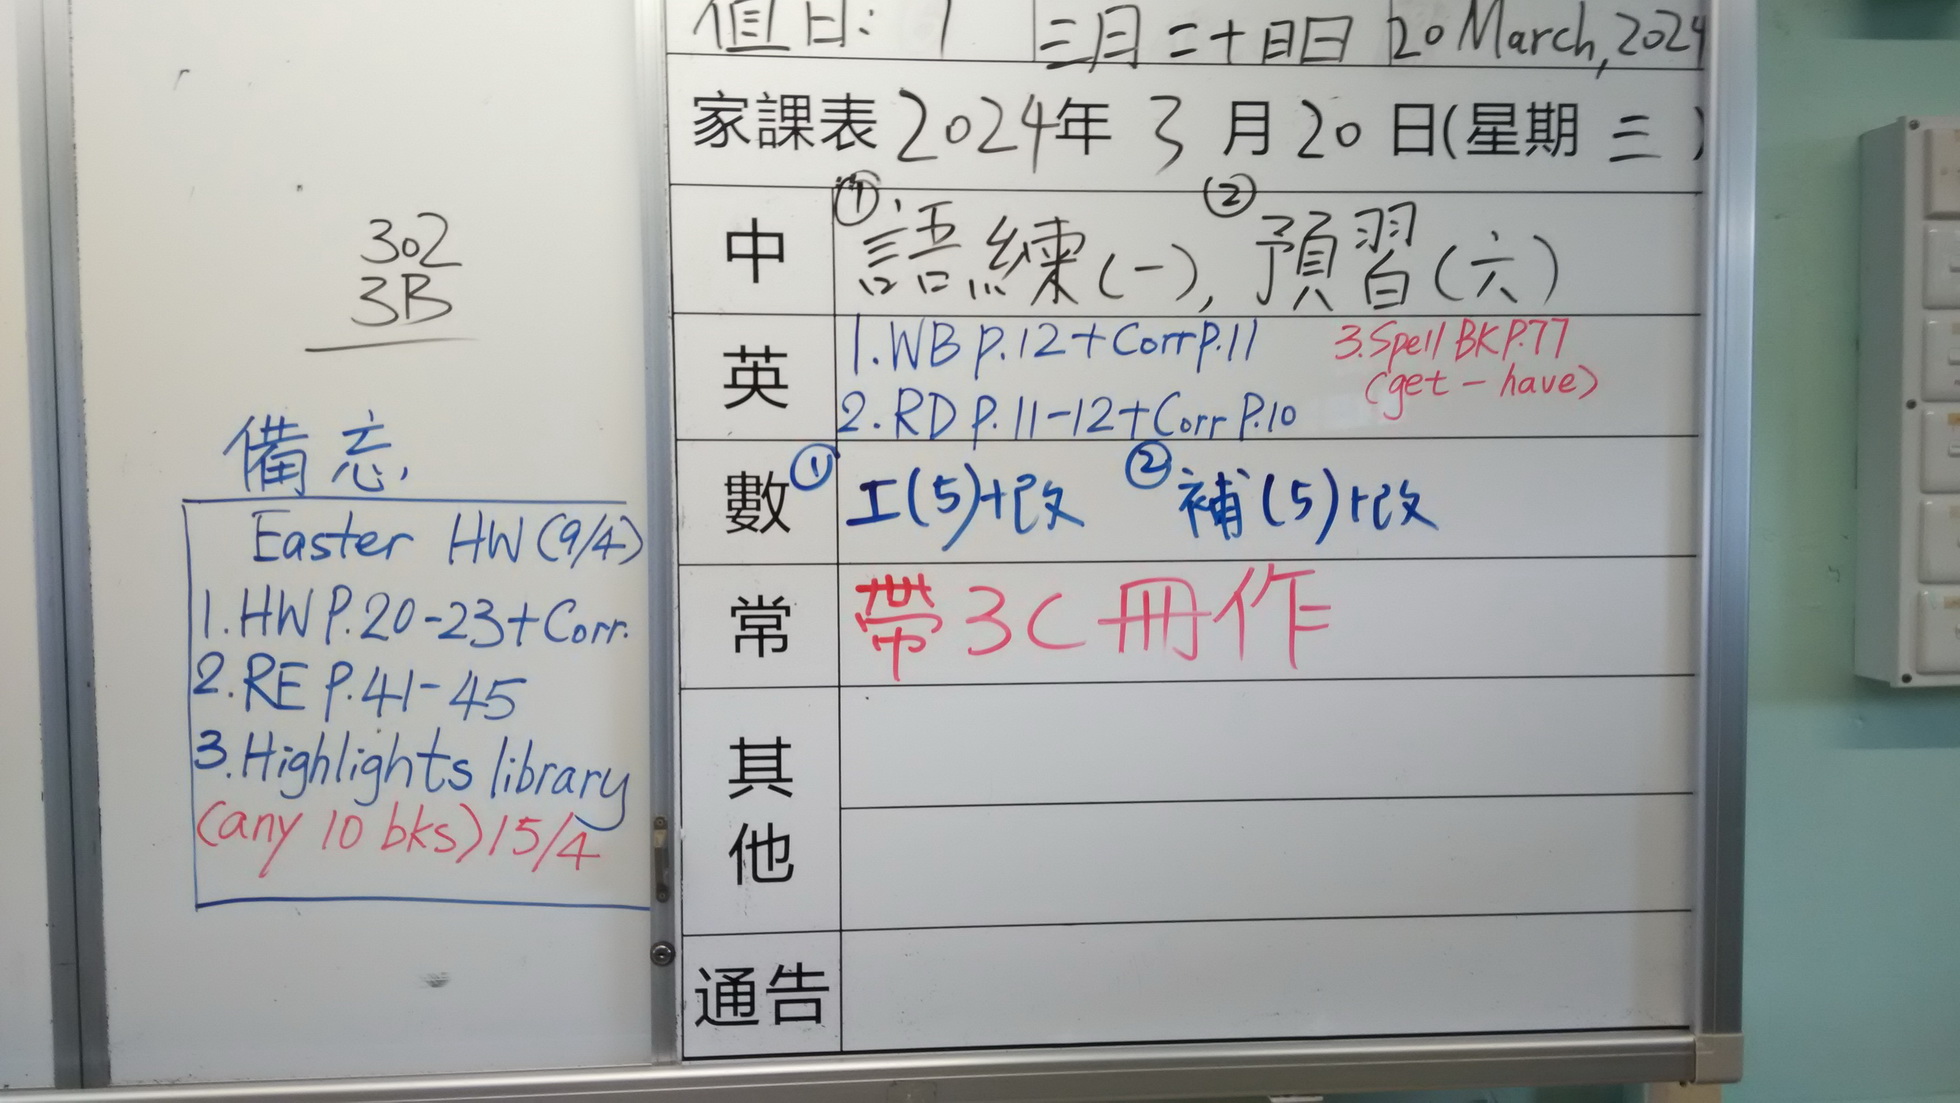 302
3B
備忘
Easter HW (9/4)
1. HW P.20-23 + Corr.
2. RE P.41-45
3. Highlights library
(any 10 bks) 15/4
值日: 1 三月二十日 20 March, 2024
家課表 2024年 3月 20日(星期三)
中 ①語練(一), ②預習(六)
英 1. WB P.12 + Corr P.11
2. RD P.11-12 + Corr P.10
3. Spell BK P.77
(get - have)
數 ①工(5)+改 ②補(5)+改
常 帶3C冊作
其他
通告